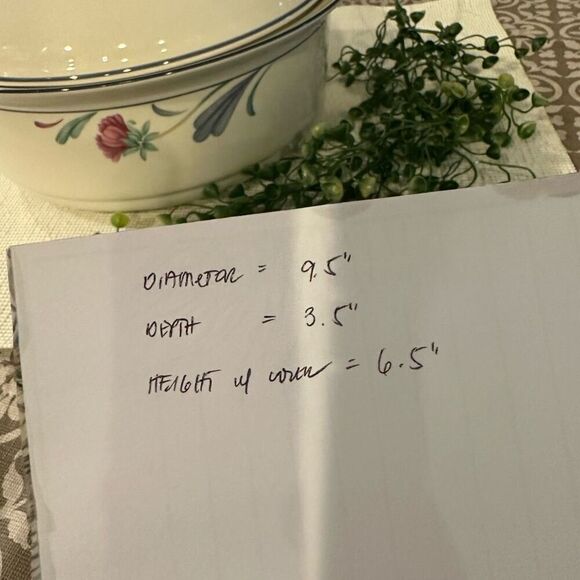 DIAMETER = 9.5"
DEPTH = 3.5"
HEIGHT w/ COVER = 6.5"